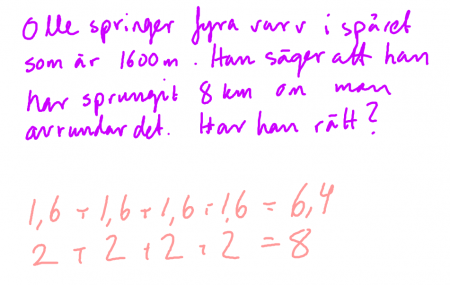 Olle springer fyra varv i spåret
som är 1600 m. Han säger att han
har sprungit 8 km om man
avrundar det. Har han rätt?
1,6 + 1,6 + 1,6 + 1,6 = 6,4
2 + 2 + 2 + 2 = 8